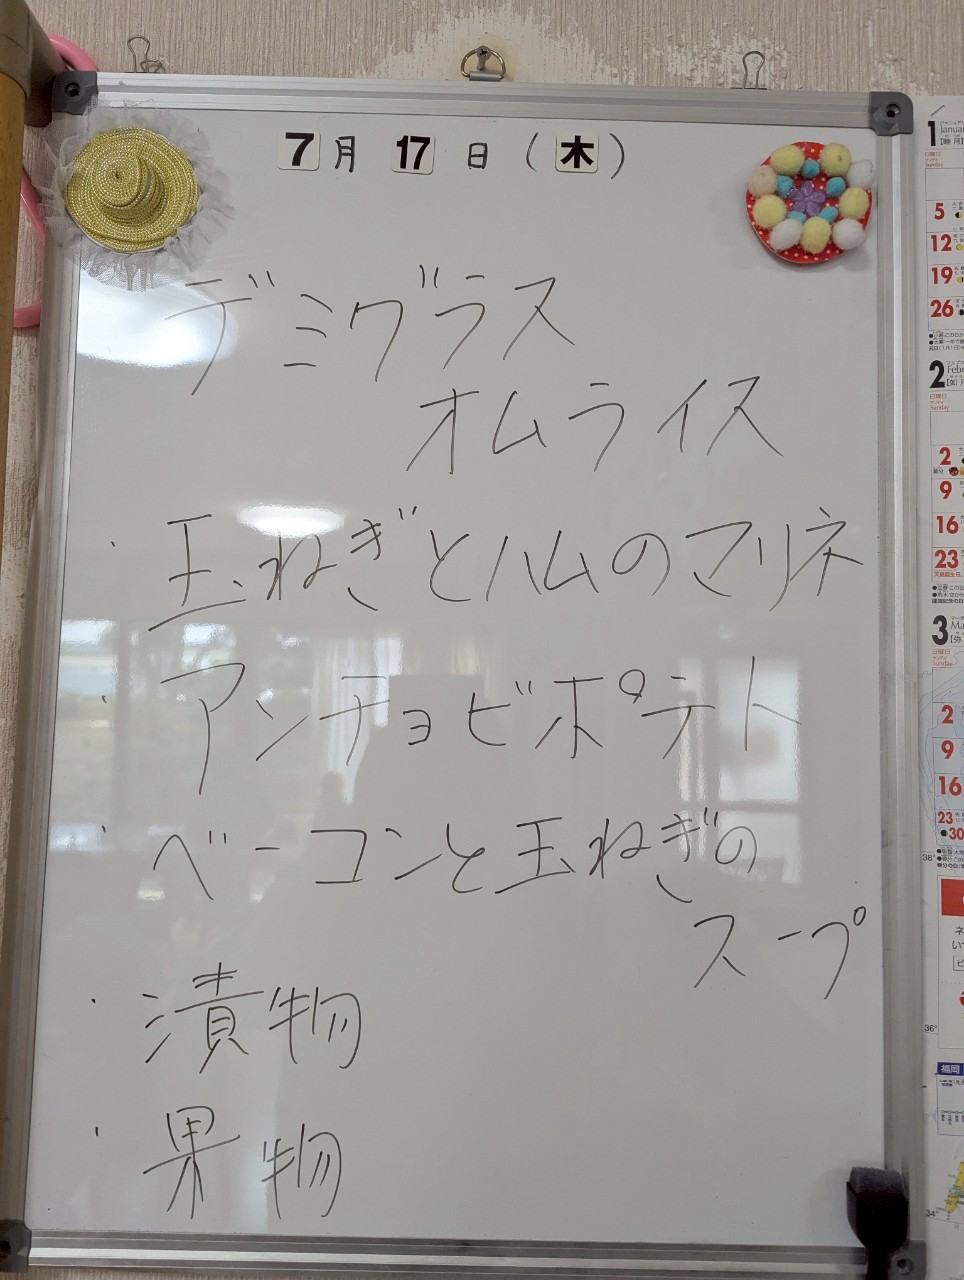 7月 17日(木)
デミグラス
オムライス
・玉ねぎとハムのマリネ
・アンチョビポテト
・ベーコンと玉ねぎの
スープ
・漬物
・果物
1
日曜日
Sunday
5
12
19
26
2
日曜日
Sunday
2
9
16
23
3
日曜日
Sunday
2
9
16
23
30
38°
36°
福岡
34°